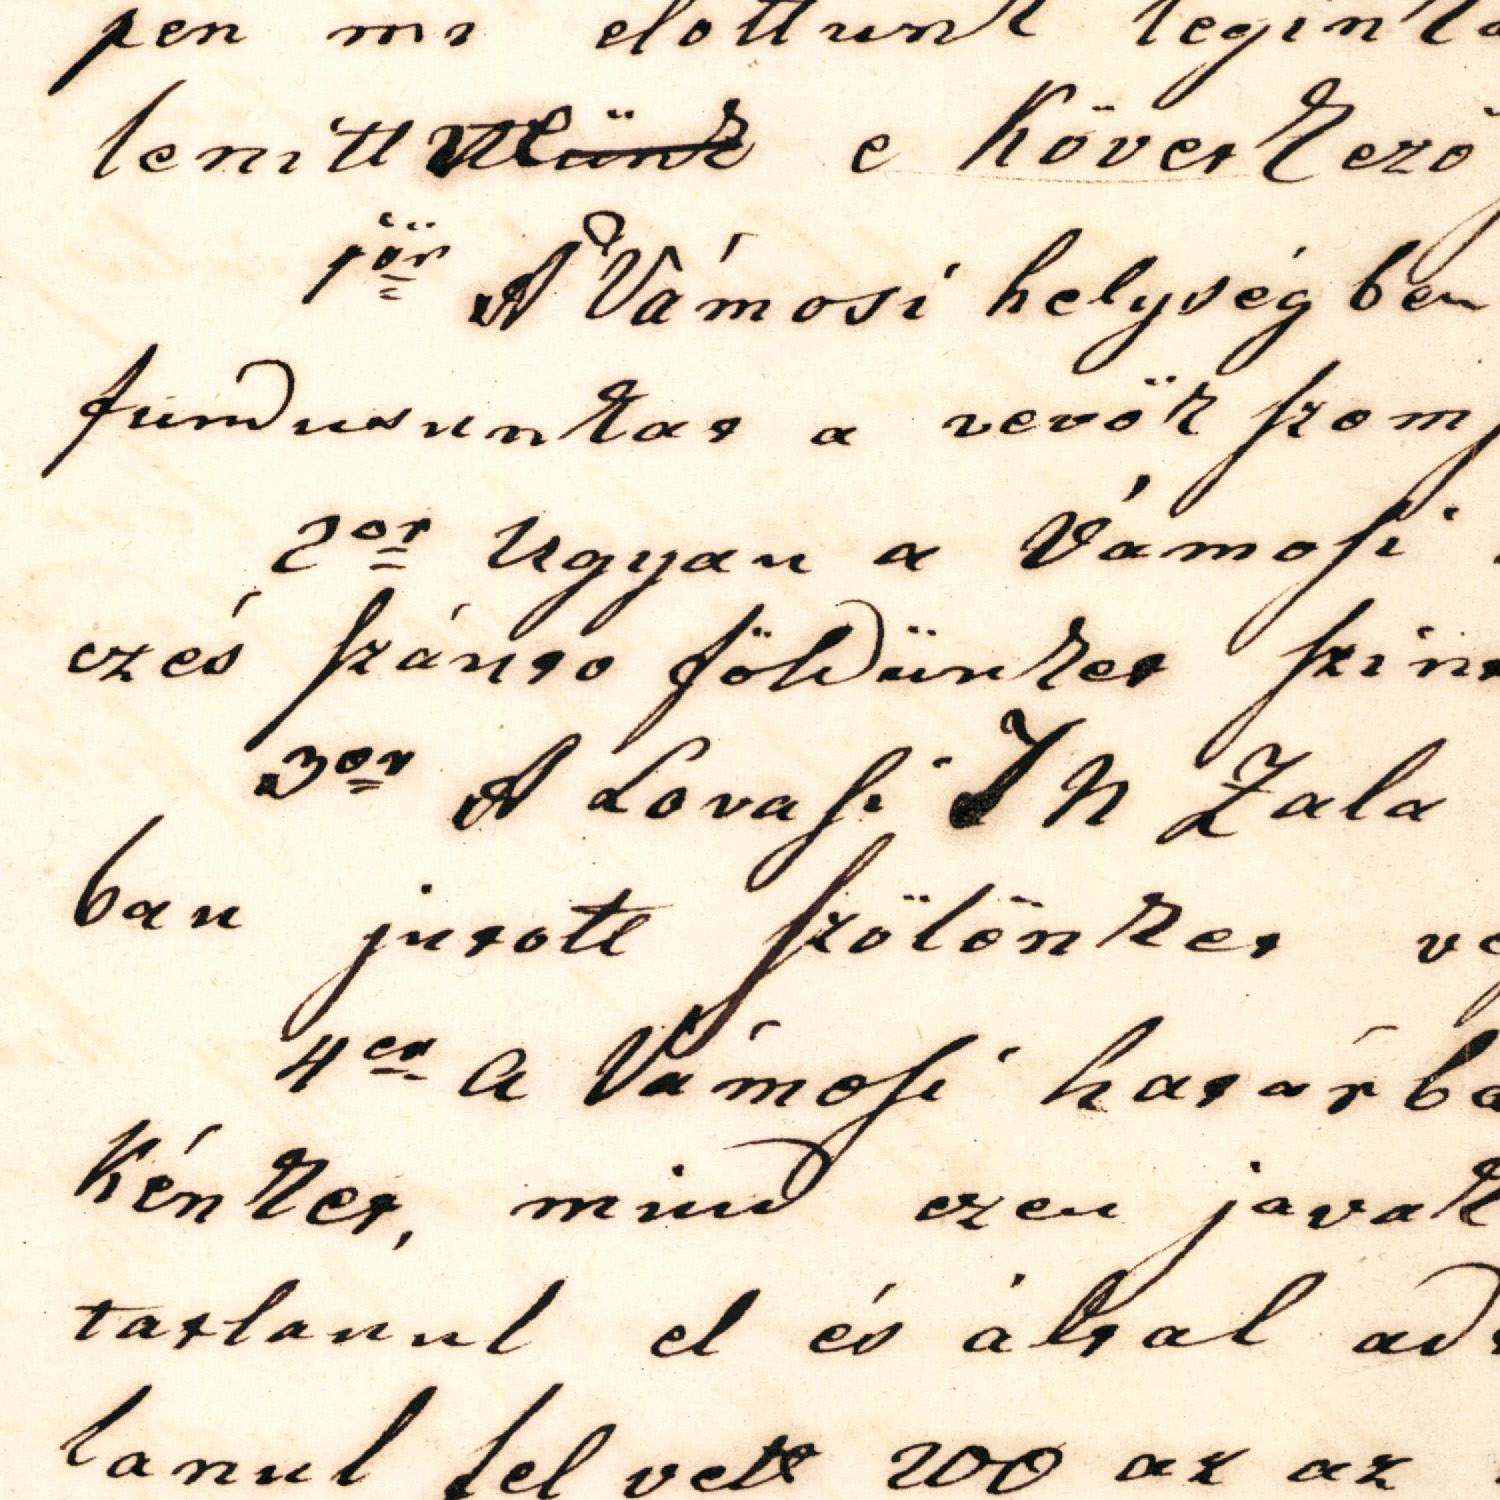 pen mi elöttünk legink
lenitt e Következö
1ör A Vámosi helységben
fundusunkat a vevök szom
2or Ugyan a Vámosi
ezés szánto földünket szint
3or A Lovasi IN Zala
ban jutott szölönket ve
4er A Vámosi határba
Kénket, mind ezen javak
tartlanul el és által ad
lanul fel vett 200 az az